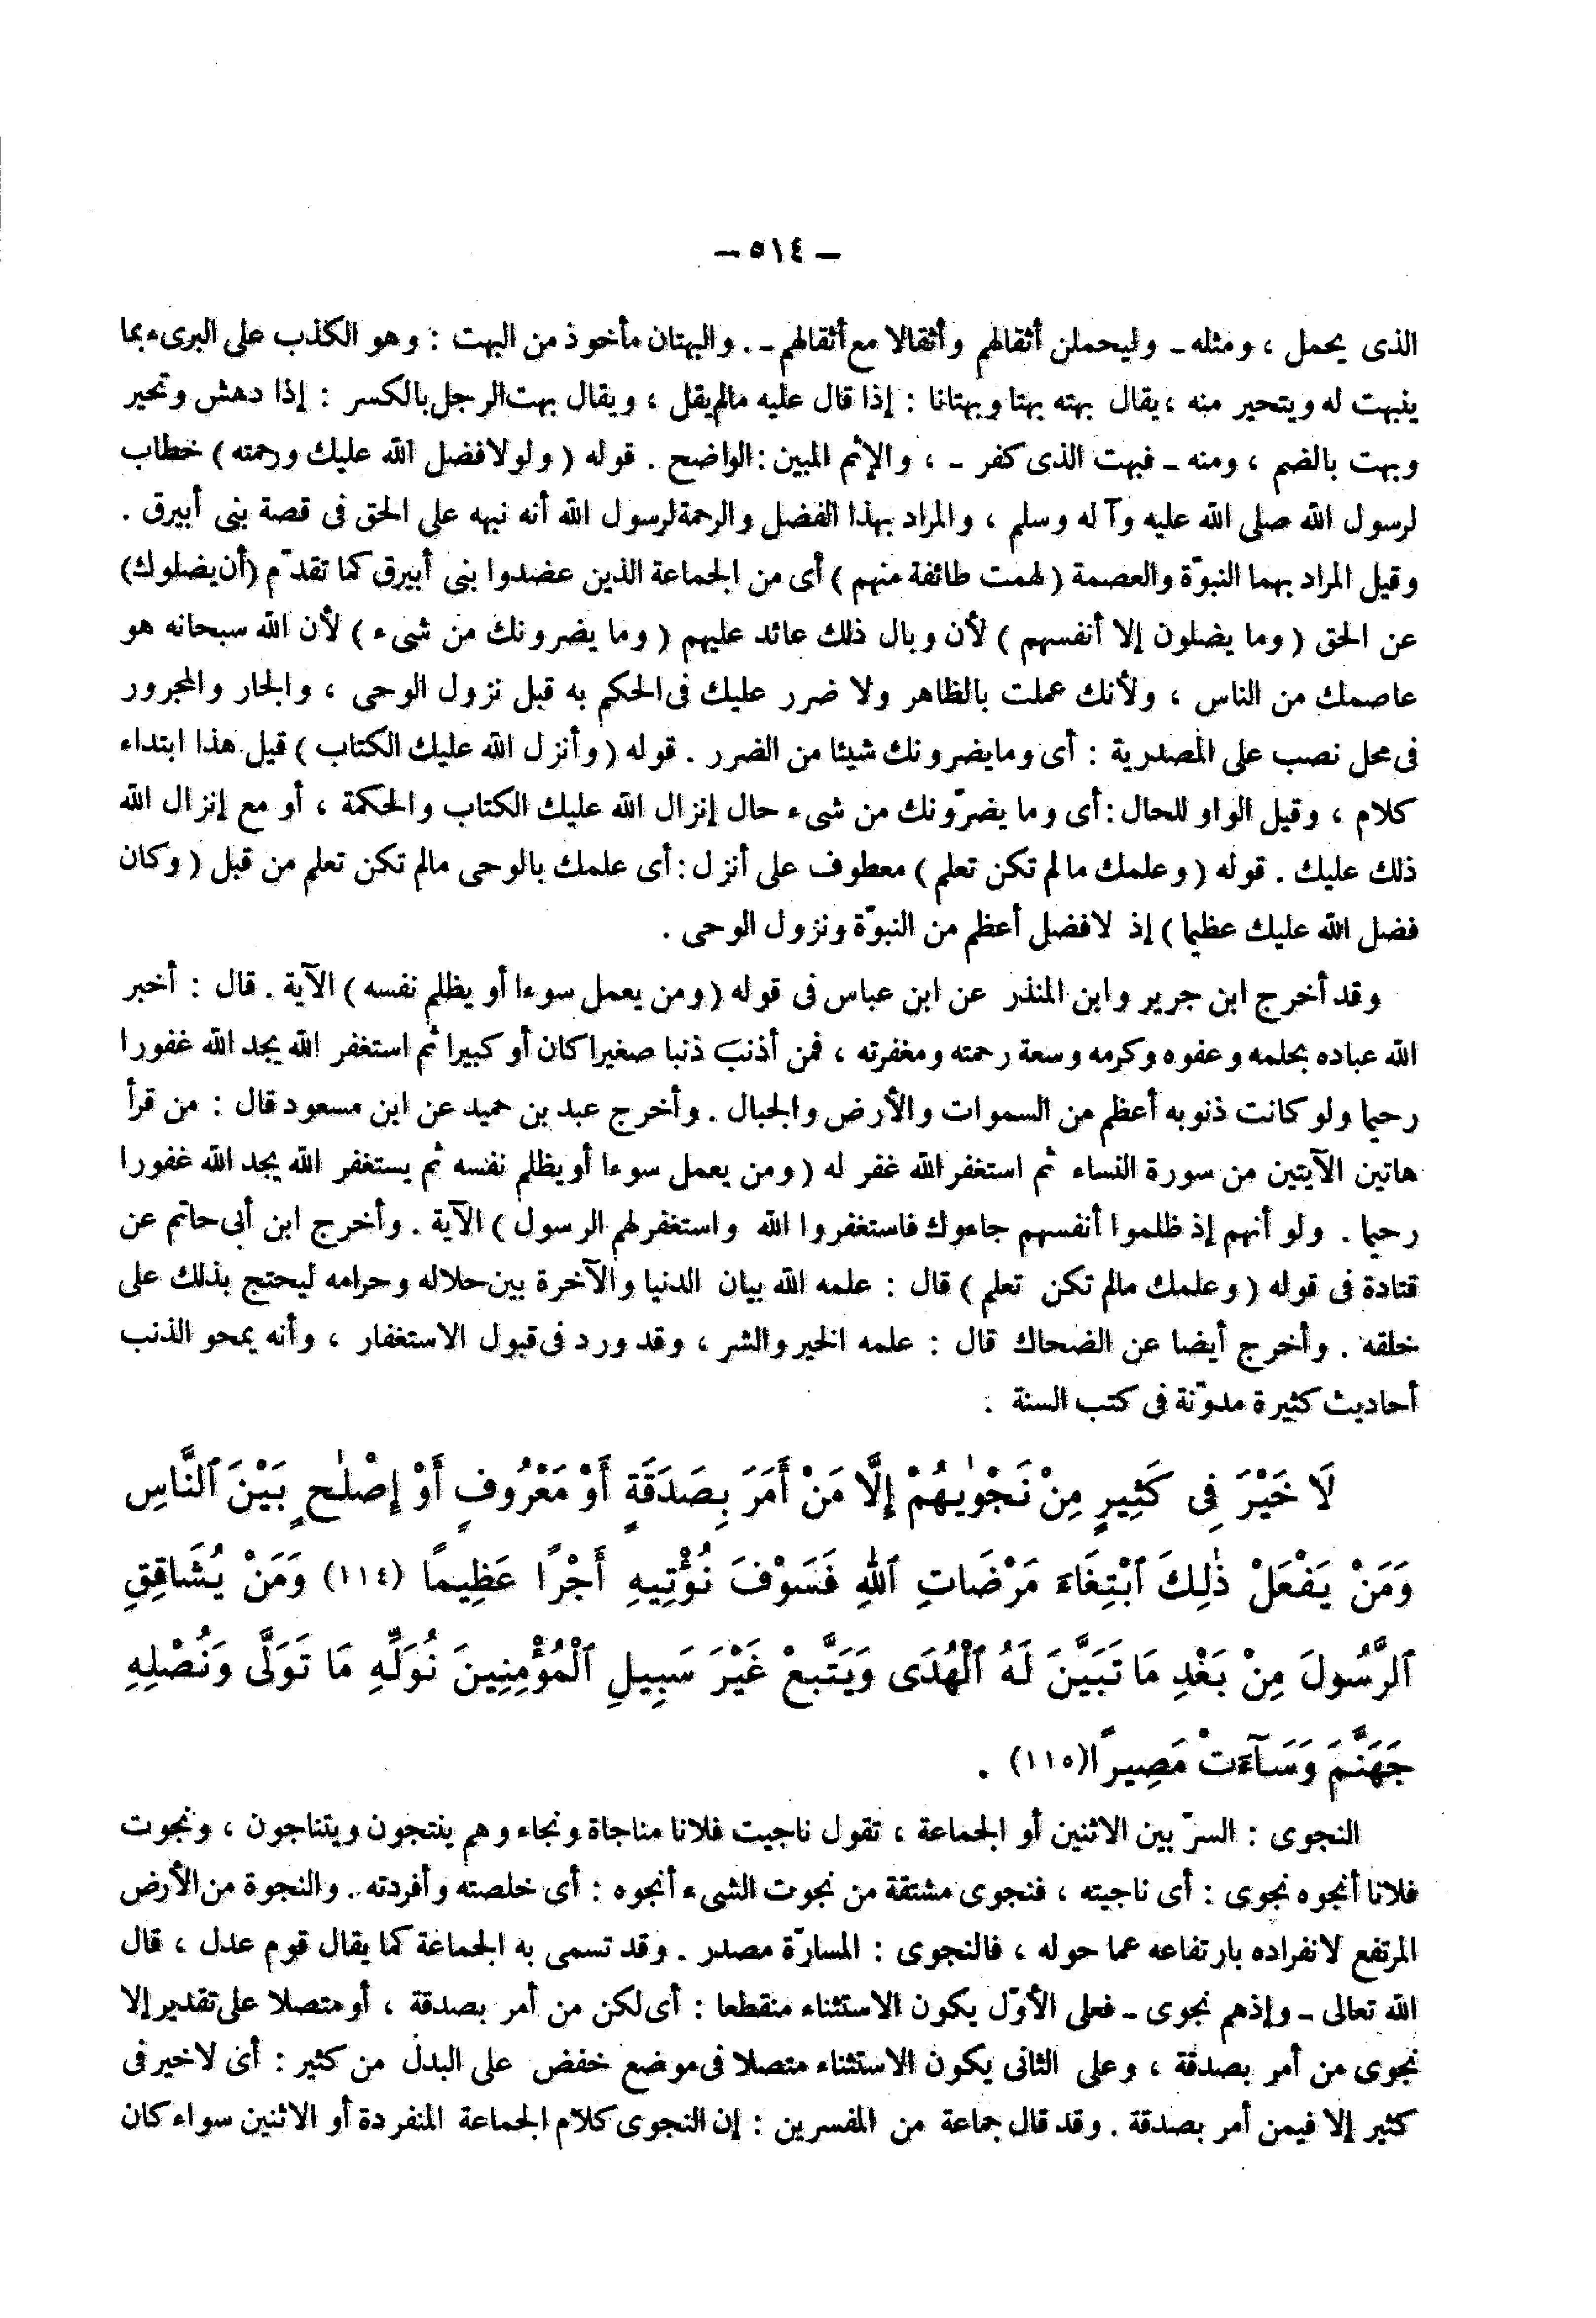 — ٥١٤ —
الذى يحمل ، ومثله ـ وليحملن أثقالهم وأثقالا مع أثقالهم ـ . والبهتان مأخوذ من البهت : وهو الكذب على البرىء بما
ينبهت له ويتحير منه ، يقال بهته بهتا وبهتانا : إذا قال عليه مالم يقل ، ويقال بهت الرجل بالكسر : إذا دهش وتحير
وبهت بالضم ، ومنه ـ فبهت الذى كفر ـ ، والإثم المبين : الواضح . قوله ( ولولا فضل الله عليك ورحمته ) خطاب
لرسول الله صلى الله عليه وآله وسلم ، والمراد بهذا الفضل والرحمة لرسول الله أنه نبهه على الحق فى قصة بنى أبيرق .
وقيل المراد بهما النبوّة والعصمة ( لهمت طائفة منهم ) أى من الجماعة الذين عضدوا بنى أبيرق كما تقدّم (أن يضلوك)
عن الحق ( وما يضلون إلا أنفسهم ) لأن وبال ذلك عائد عليهم ( وما يضرونك من شىء ) لأن الله سبحانه هو
عاصمك من الناس ، ولأنك عملت بالظاهر ولا ضرر عليك فى الحكم به قبل نزول الوحى ، والجار والمجرور
فى محل نصب على المصدرية : أى وما يضرونك شيئا من الضرر . قوله ( وأنزل الله عليك الكتاب ) قيل هذا ابتداء
كلام ، وقيل الواو للحال : أى وما يضرّونك من شىء حال إنزال الله عليك الكتاب والحكمة ، أو مع إنزال الله
ذلك عليك . قوله ( وعلمك ما لم تكن تعلم ) معطوف على أنزل : أى علمك بالوحى مالم تكن تعلم من قبل ( وكان
فضل الله عليك عظيما ) إذ لا فضل أعظم من النبوّة ونزول الوحى .
وقد أخرج ابن جرير وابن المنذر عن ابن عباس فى قوله ( ومن يعمل سوءا أو يظلم نفسه ) الآية . قال : أخبر
الله عباده بحلمه وعفوه وكرمه وسعة رحمته ومغفرته ، فمن أذنب ذنبا صغيرا كان أو كبيرا ثم استغفر الله يجد الله غفورا
رحيما ولو كانت ذنوبه أعظم من السموات والأرض والجبال . وأخرج عبد بن حميد عن ابن مسعود قال : من قرأ
هاتين الآيتين من سورة النساء ثم استغفر الله غفر له ( ومن يعمل سوءا أو يظلم نفسه ثم يستغفر الله يجد الله غفورا
رحيما . ولو أنهم إذ ظلموا أنفسهم جاءوك فاستغفروا الله واستغفر لهم الرسول ) الآية . وأخرج ابن أبى حاتم عن
قتادة فى قوله ( وعلمك مالم تكن تعلم ) قال : علمه الله بيان الدنيا والآخرة بين حلاله وحرامه ليحتج بذلك على
خلقه . وأخرج أيضا عن الضحاك قال : علمه الخير والشر ، وقد ورد فى قبول الاستغفار ، وأنه يمحو الذنب
أحاديث كثيرة مدوّنة فى كتب السنة .
لَا خَيْرَ فِى كَثِيرٍ مِنْ نَجْوٰيهُمْ إِلَّا مَنْ أَمَرَ بِصَدَقَةٍ أَوْ مَعْرُوفٍ أَوْ إِصْلٰحٍ بَيْنَ ٱلنَّاسِ
وَمَنْ يَفْعَلْ ذٰلِكَ ٱبْتِغَاءَ مَرْضَاتِ ٱللهِ فَسَوْفَ نُؤْتِيهِ أَجْرًا عَظِيمًا (١١٤) وَمَنْ يُشَاقِقِ
ٱلرَّسُولَ مِنْ بَعْدِ مَا تَبَيَّنَ لَهُ ٱلْهُدَى وَيَتَّبِعْ غَيْرَ سَبِيلِ ٱلْمُؤْمِنِينَ نُوَلِّهِ مَا تَوَلَّى وَنُصْلِهِ
جَهَنَّمَ وَسَآءَتْ مَصِيرًا (١١٥) .
النجوى : السرّ بين الاثنين أو الجماعة ، تقول ناجيت فلانا مناجاة ونجاء وهم ينتجون ويتناجون ، ونجوت
فلانا أنجوه نجوى : أى ناجيته ، فنجوى مشتقة من نجوت الشىء أنجوه : أى خلصته وأفردته . والنجوة من الأرض
المرتفع لانفراده بارتفاعه عما حوله ، فالنجوى : المسارّة مصدر . وقد تسمى به الجماعة كما يقال قوم عدل ، قال
الله تعالى ـ وإذ هم نجوى ـ فعلى الأوّل يكون الاستثناء منقطعا : أى لكن من أمر بصدقة ، أو متصلا على تقدير إلا
نجوى من أمر بصدقة ، وعلى الثانى يكون الاستثناء متصلا فى موضع خفض على البدل من كثير : أى لا خير فى
كثير إلا فيمن أمر بصدقة . وقد قال جماعة من المفسرين : إن النجوى كلام الجماعة المنفردة أو الاثنين سواء كان